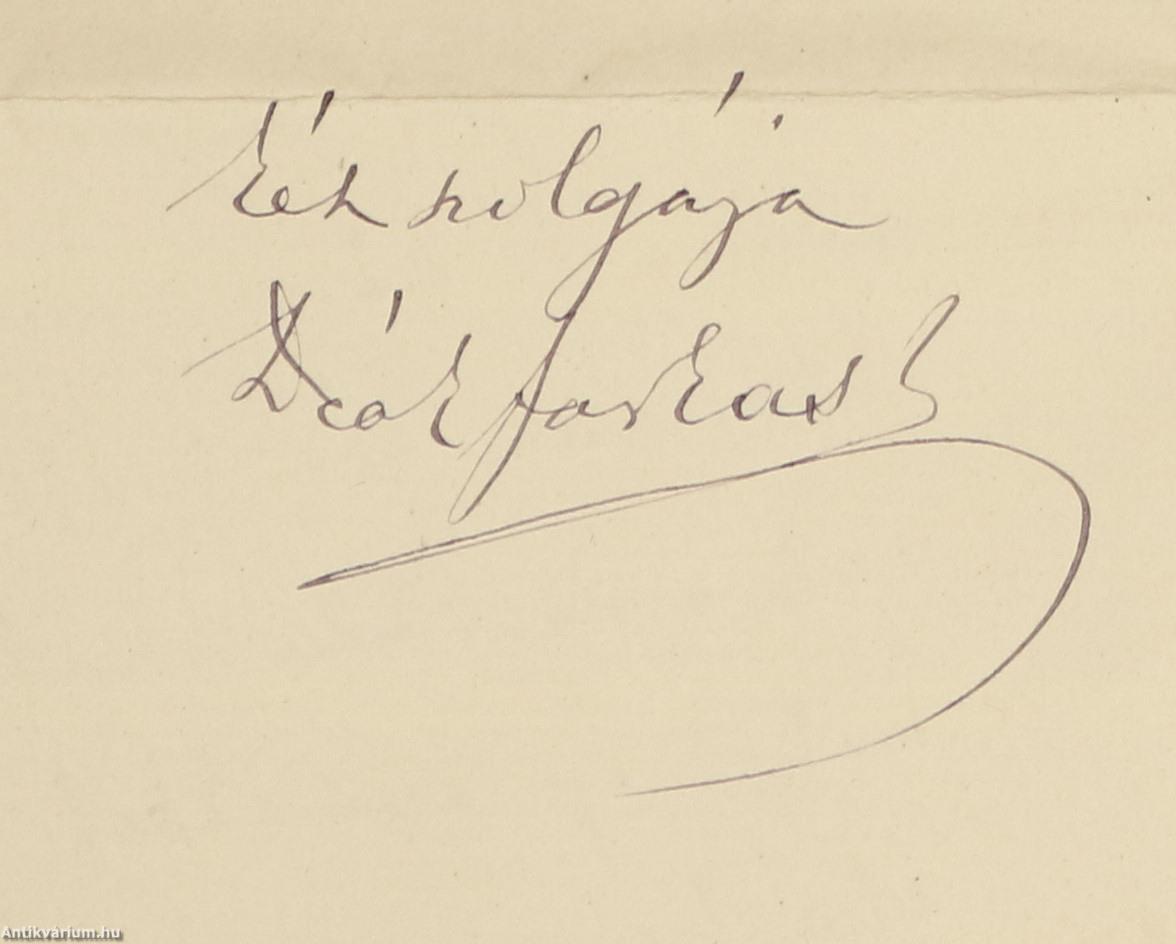 kész szolgája
Deák Farkas
Antikvárium.hu